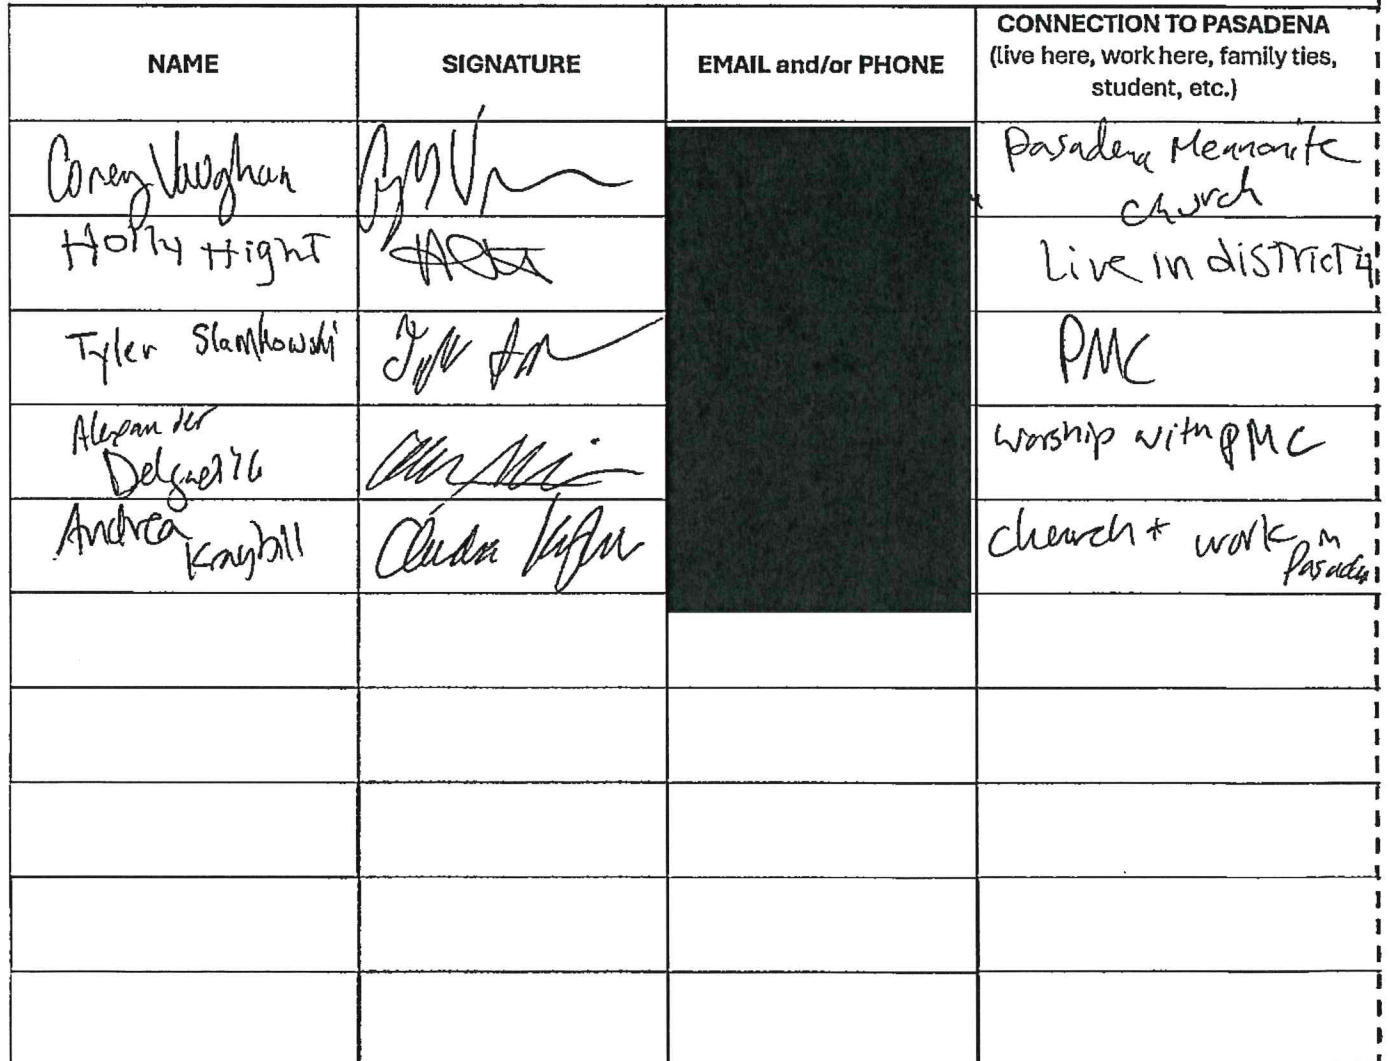 NAME
SIGNATURE
EMAIL and/or PHONE
CONNECTION TO PASADENA
(live here, work here, family ties,
student, etc.)
Corey Vaughan
Pasadena Mennonite
church
Holly Hight
Live in district 4
Tyler
PMC
Alexander
worship with PMC
Andrea
Kraybill
church + work in
Pasadena